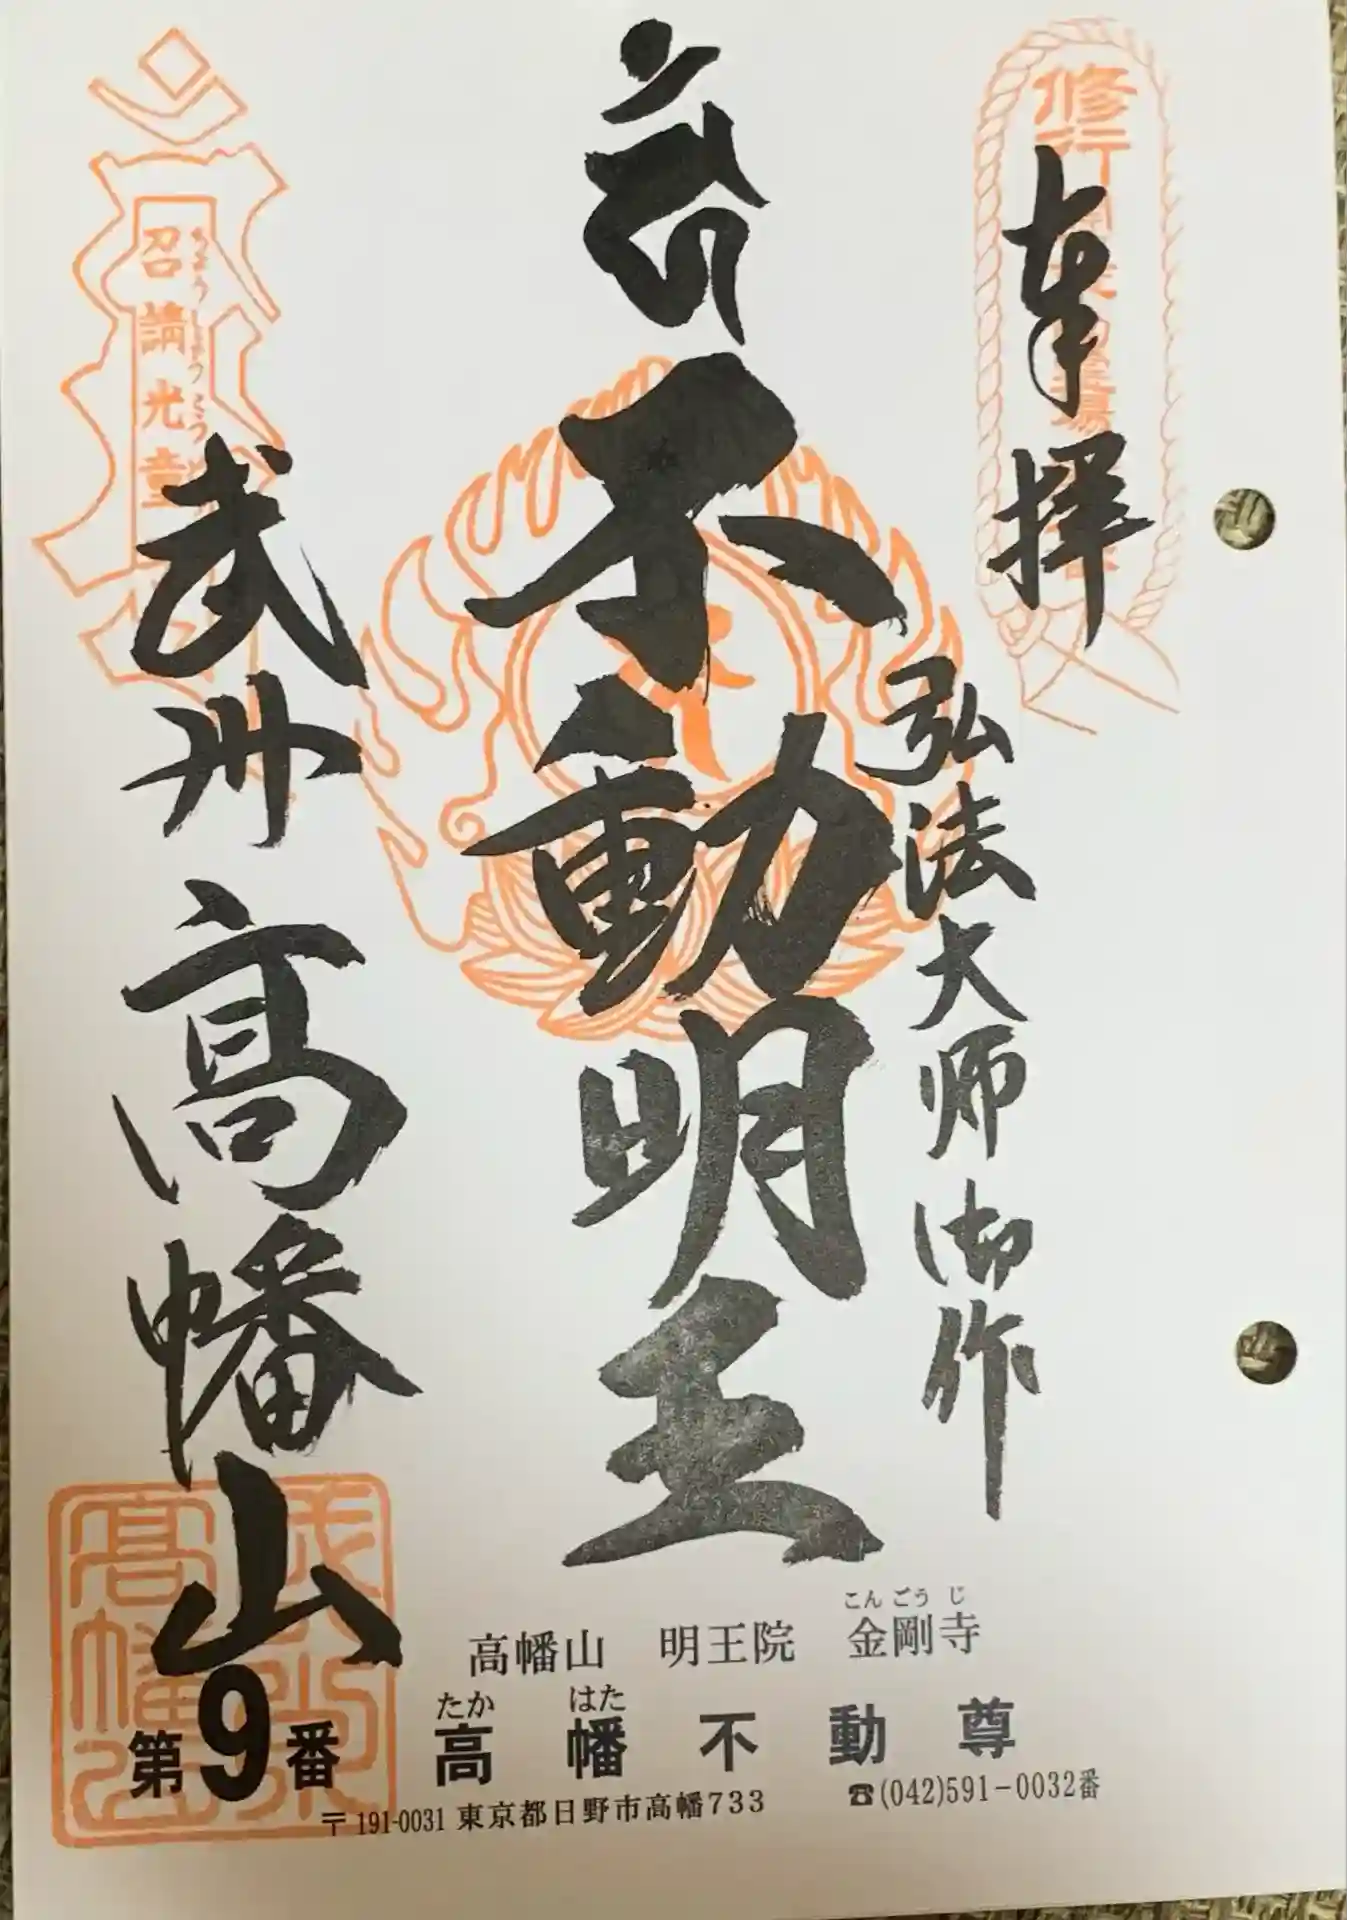 奉拝
弘法大师御作
不動明王
武州高幡山
召請光童
ちょうしょうこう
高幡山　明王院　金剛寺
こんごうじ
たか　はた
高幡不動尊
第9番
〒191-0031 東京都日野市高幡733
☎(042)591-0032番